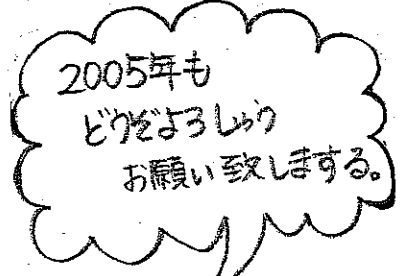 2005年も
どうぞよろしゅう
お願い致しまする。